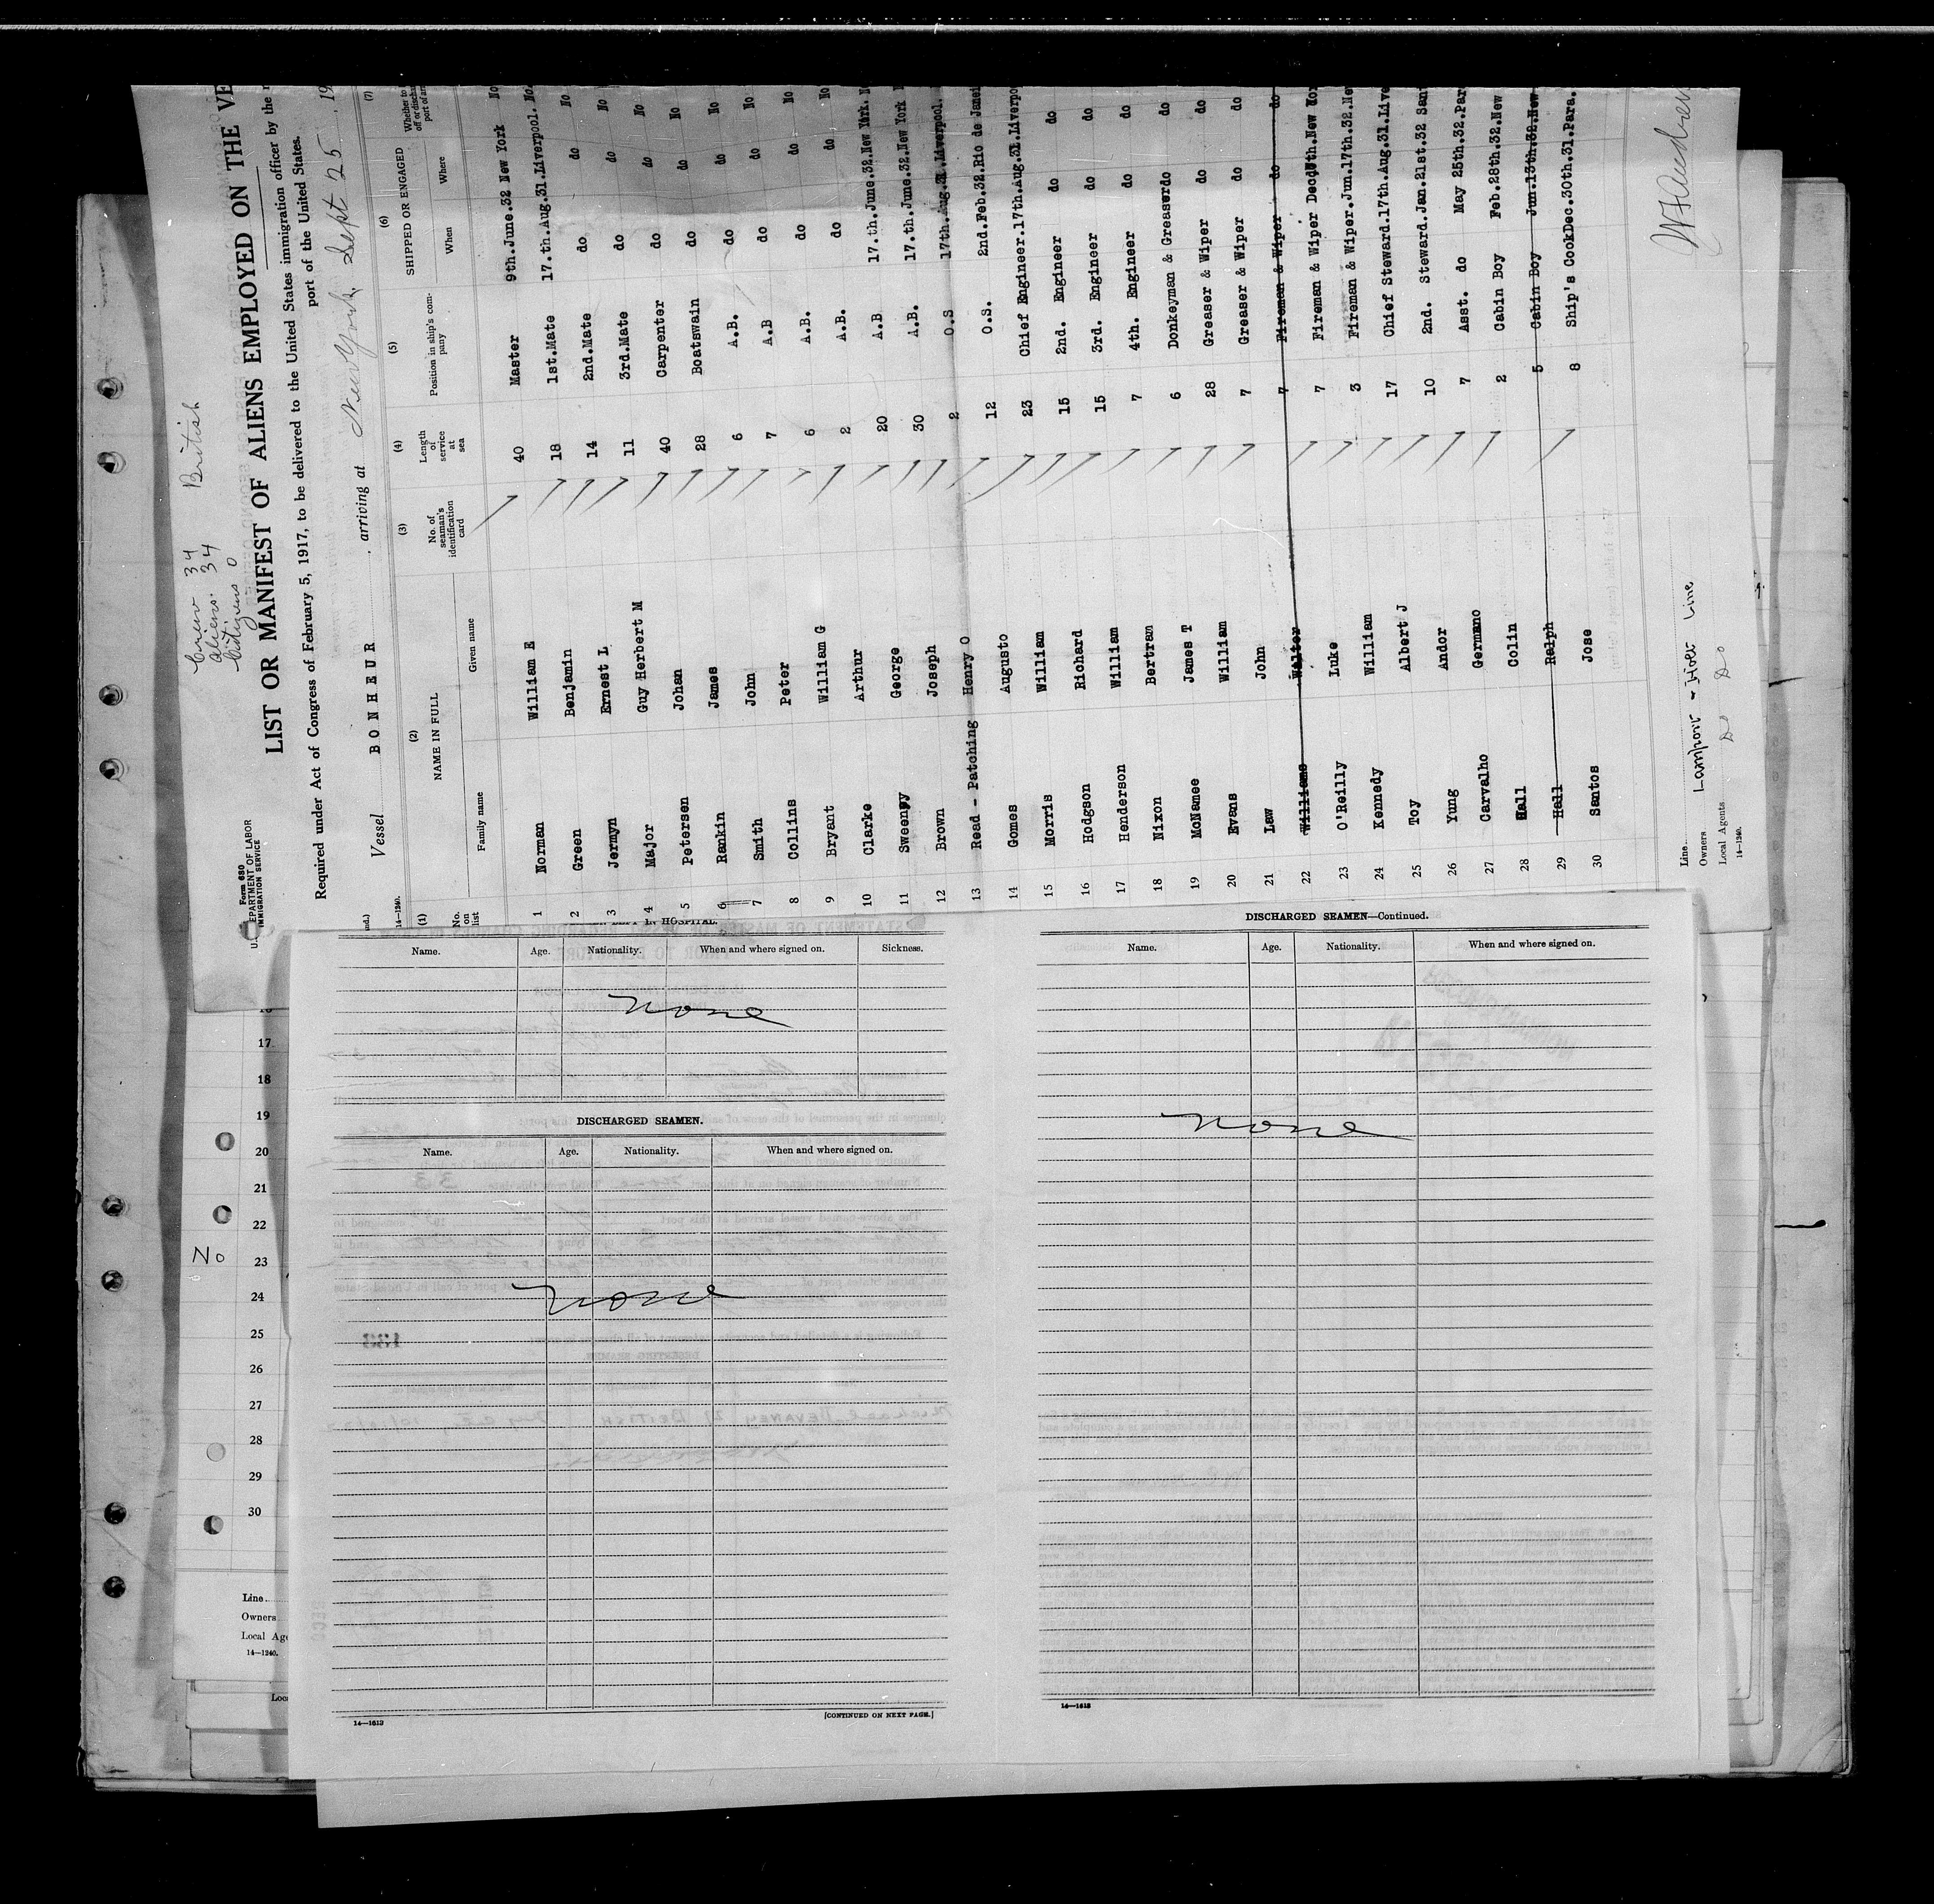 Crew 34 British
aliens. 34
Citizens 0
Form 680
U. S. DEPARTMENT OF LABOR
IMMIGRATION SERVICE
LIST OR MANIFEST OF ALIENS EMPLOYED ON THE VE
Required under Act of Congress of February 5, 1917, to be delivered to the United States immigration officer by the
port of the United States.
Vessel BONHEUR arriving at New York, Sept 25, 19
14—1240.
(1) (2) (3) (4) (5) (6) (7)
No. on list NAME IN FULL No. of seaman's identification card Length of service at sea Position in ship's company SHIPPED OR ENGAGED Whether to
Family name Given name When Where
1 Norman William E 40 Master 9th.June.32 New York No
2 Green Benjamin 18 1st.Mate 17.th.Aug.31.Liverpool. No
3 Jermyn Ernest L 14 2nd.Mate do do No
4 Major Guy Herbert M 11 3rd.Mate do do No
5 Petersen Johan 40 Carpenter do do No
6 Rankin James 28 Boatswain do do No
7 Smith John 6 A.B. do do No
8 Collins Peter 7 A.B do do No
9 Bryant William G 6 A.B. do do No
10 Clarke Arthur 2 A.B. do do No
11 Sweeney George 20 A.B 17.th.June.32.New York.
12 Brown Joseph 30 A.B. 17.th.June.32.New York
13 Read - Patching Henry O 2 O.S 17th.Aug.31.Liverpool.
14 Gomes Augusto 12 O.S. 2nd.Feb.32.Rio de Janei
15 Morris William 23 Chief Engineer.17th.Aug.31.Liverpo
16 Hodgson Richard 15 2nd. Engineer do do
17 Henderson William 15 3rd. Engineer do do
18 Nixon Bertram 7 4th. Engineer do do
19 McNamee James T 6 Donkeyman & Greaser do do
20 Evans William 28 Greaser & Wiper do do
21 Law John 7 Greaser & Wiper do do
22 Williams Walter 7 Fireman & Wiper do do
23 O'Reilly Luke 7 Fireman & Wiper New York
24 Kennedy William 3 Fireman & Wiper.Jun.17th.32.Ne
25 Toy Albert J 17 Chief Steward.17th.Aug.31.Live
26 Yung Andor 10 2nd. Steward.Jan.21st.32 San
27 Carvalho Germano 7 Asst. do May 25th.32.Par
28 Hall Colin 2 Cabin Boy Feb.28th.32.New
29 Hall Ralph 5 Cabin Boy Jun.13th.32.New
30 Santos Jose 8 Ship's Cook Dec.30th.31.Para.
Line Lamport & Holt Line
Owners Do Do
Local Agents
14—1240.
Name. Age. Nationality. When and where signed on. Sickness.
none
DISCHARGED SEAMEN.
Name. Age. Nationality. When and where signed on.
none
14—1613
[CONTINUED ON NEXT PAGE.]
DISCHARGED SEAMEN—Continued.
Name. Age. Nationality. When and where signed on.
none
14—1613
17
18
19
20
21
22
No 23
24
25
26
27
28
29
30
Line
Owners
Local Age
14—1240.